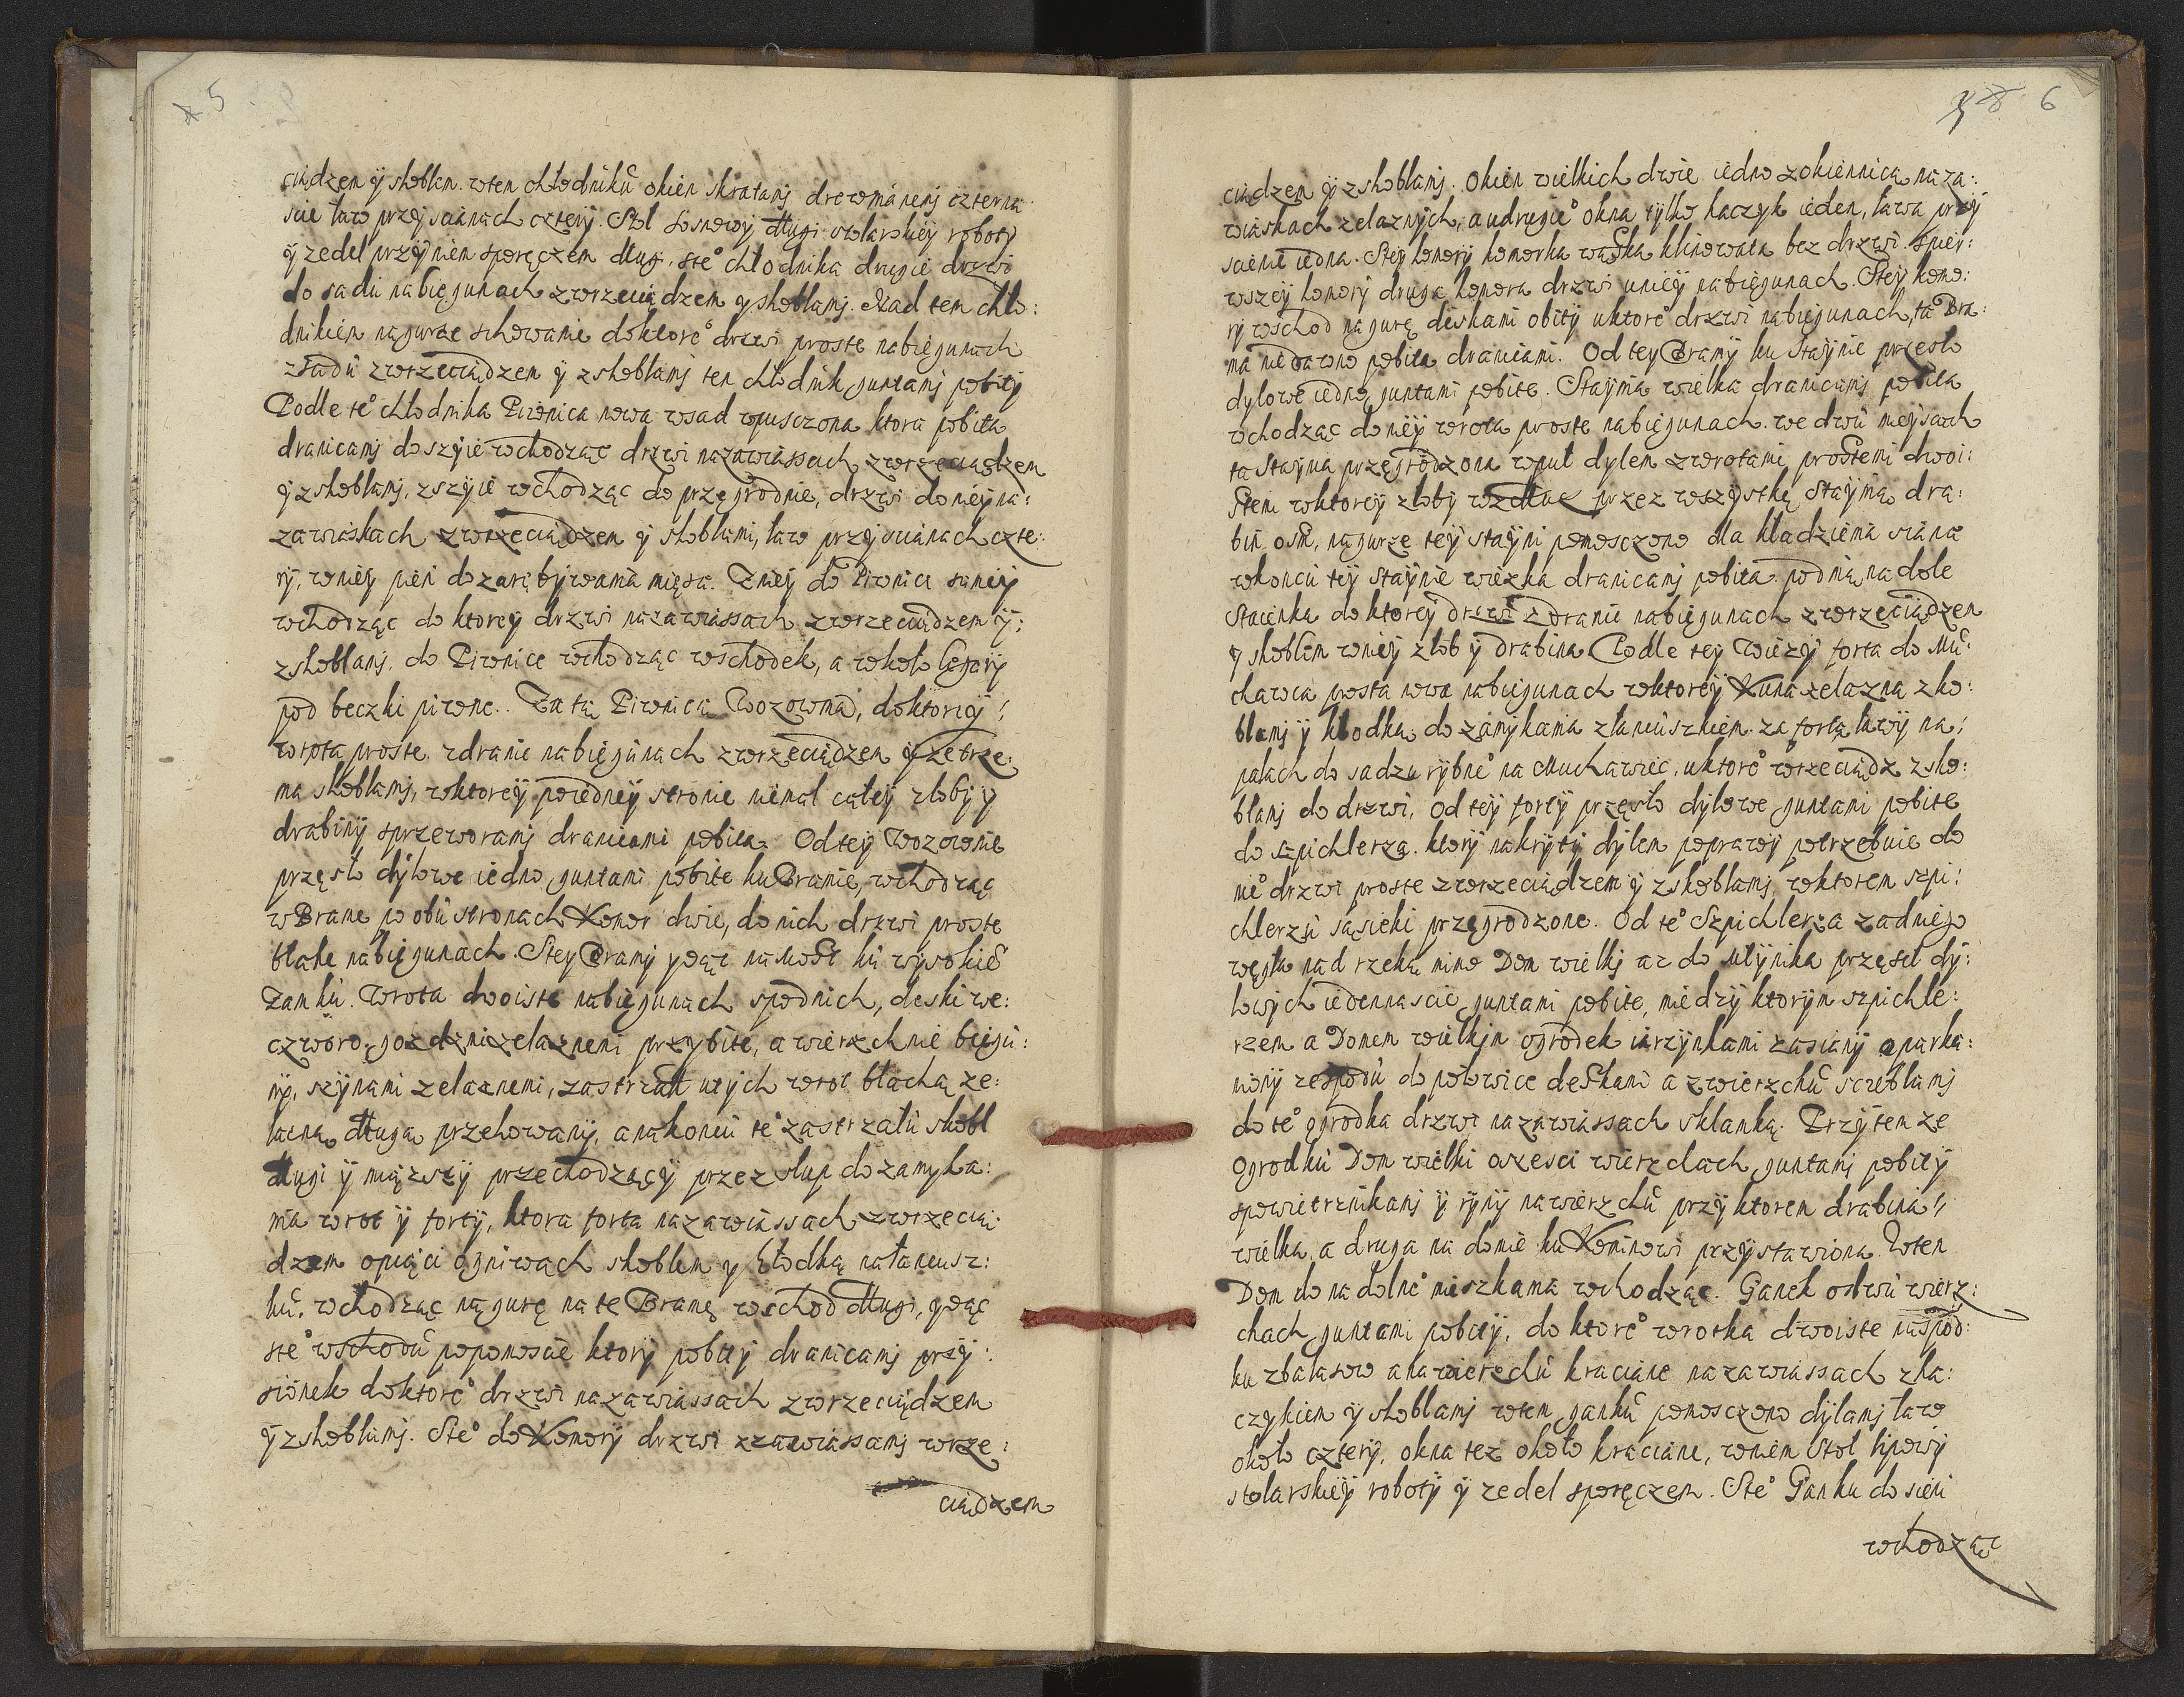 5
ciądzem ÿ skoblem. wtem chłodniku okien skratamj drewnianemj czterna
scie ław przÿ scianach czterÿ. Stol sosnowÿ długi stolarskieÿ robotÿ
ÿ zedel przÿ niem sporęczem długi, ste° chłodnika drugie drzwi
do sadu nabiegunach zwrzeciądzem ÿ skoblamj. Nad tem chło:
dnikiem nagurze schowanie doktore° drzwi proste nabiegunach
zsadu zwrzeciądzem ÿ zskoblamj ten chłodnik guntamj pobitÿ
Podle te° chłodnika Piwnica nowa wsad wpusczona ktora pobita
dranicamj do szÿie wchodząc drzwi nazawiassach zwrzeciądzem
ÿ zskoblamj, zszÿie wchodząc do przegrodnie, drzwi do nieÿ na:
zawiaskach zwrzeciądzem ÿ skoblami, ław przÿ scianach czte:
rÿ, wnieÿ pień do zarąbÿwania mięsa. Zniej do Piwnice samieÿ
wchodząc do ktoreÿ drzwi nazawiassach zwrzeciądzem ÿ:
zskoblamj. do Piwnice wchodząc wschodek, a wkoło Legarÿ
pod beczki piwne. Za tą Piwnicą Wozownia, doktorieÿ
wrota proste zdranic nabiegunach zwrzeciądzem ÿ ze trze:
ma skoblamj, wktoreÿ poiedneÿ stronie niemal całeÿ złobÿ ÿ
drabinÿ sprzeworamj dranicami pobita. Od teÿ Wozownie
przęsło dÿlowe iedno guntami pobite ku Bramie, wchodząc
w Brame po obu stronach Komor dwie, do nich drzwi proste
błahe nabiegunach. Steÿ Bramÿ ÿdąc na Most ku wÿsokie°
Zamku. Wrota dwoiste nabiegunach spodnich, deski we:
czworo gozdzmi zelaznemi przÿbite, a wierzchnie biegu:
nÿ, szÿnami zelaznemi, zastrzał utÿch wrot blachą ze:
lazną długą przekowanÿ, a nakoncu te° zastrzału skobl
długi ÿ miązszÿ przechodzącÿ przez słup do zamÿka:
nia wrot ÿ fortÿ, ktora forta nazawiassach zwrzecią:
dzem opiąci ogniwach skoblem ÿ kłodką nałancusz:
ku. wchodząc nagurę na te Bramę wschod długi, ÿdąc
ste° wschodu popomoscie ktorÿ pobitÿ dranicamj przÿ:
sionek doktore° drzwi nazawiassach zwrzeciądzem
ÿ zskoblamj. Ste° do Komorÿ drzwi zzawiassamj wrze:
ciądzem
6
ciądzem ÿ zskoblamj. Okien wielkich dwie iedno zokiennicą naza:
wiaskach zelaznÿch, a udrugie° okna tÿlko haczÿk ieden, ława przÿ
scienie iedna. Steÿ komorÿ komorka wąska klinowata bez drzwi. Spier:
wszeÿ komorÿ druga komora drzwi unieÿ nabiegunach. Steÿ komo:
rÿ wschod nagurę deskami obitÿ uktore° drzwi nabiegunach, ta Bra:
ma niedawno pobita dranicami. Od teÿ Bramÿ ku Staÿnie przęsło
dÿlowe iedno guntami pobite. Staÿnia wielka dranicamj pobita
wchodząc do nieÿ wrota proste nabiegunach. we dwu mieÿscach
ta Staÿnia przegrodzona wpuł dÿlem zwrotami prostemi dwoi:
stem wktoreÿ złobÿ wzdłuż przez wszÿstkę Staÿnią dra:
bin osm, nagurze teÿ staÿni pomosczono dla kładzienia siana
wkoncu teÿ Staÿnie wiezka dranicamj pobita, podnią na dole
Staienka do ktoreÿ drzwi zdranic nabiegunach zwrzeciądzem
ÿ skoblem wnieÿ złob ÿ drabina. Podle teÿ Wiezÿ forta do Mu:
chawca prosta nowa nabiegunach wktoreÿ Kuna zelazna zko:
blamj ÿ kłodką do zamÿkania złancuszkiem. za fortą ławÿ na:
palach do sadzu rÿbne° na Muchawiec, uktore° wrzeciądz zsko:
blamj do drzwi. od teÿ fortÿ przęsło dÿlowe guntami pobite
do szpichlerza. ktorÿ nakrÿtÿ dÿlem poprawÿ potrzebuie do
nie° drzwi proste zwrzeciądzem ÿ zskoblamj, wktorem szpi:
chlerzu sąsieki przegrodzone. Od te° Szpichlerza zadniego
węgła nad rzeką mimo Dom wielkj az do Młÿnika przęseł dÿ:
lowÿch iedennascie guntami pobite, miedzÿ ktorÿm szpichle:
rzem a Domem wielkjm ogrodek iarzÿnkami zasianÿ oparka:
nionÿ zespodu do połowice deskami a zwierzchu szczeblamj
do te° ogrodka drzwi nazawiassach sklamką. Przÿ tem ze
Ogrodku Dom wielki oszesci wierzchach guntamj pobitÿ
spowietrznikamj ÿ rÿnÿ nawierzchu przÿ ktorem drabina
wielka, a druga na domie ku Kominowi przÿstawiona. Wten
Dom do na dolne° mieszkania wchodząc. Ganek odwu wierz:
chach guntami pobitÿ, do ktore° wrotka dwoiste naspod:
ku zbalasow a nawierzchu kraciane nazawiassach zha:
czÿkiem ÿ skoblamj wtem ganku pomosczono dÿlamj ław
około czterÿ, okna tez około kraciane, wniem Stoł lipowÿ
stolarskieÿ robotÿ ÿ zedel sporęczem. Ste° Ganku do sieni
wchodząc